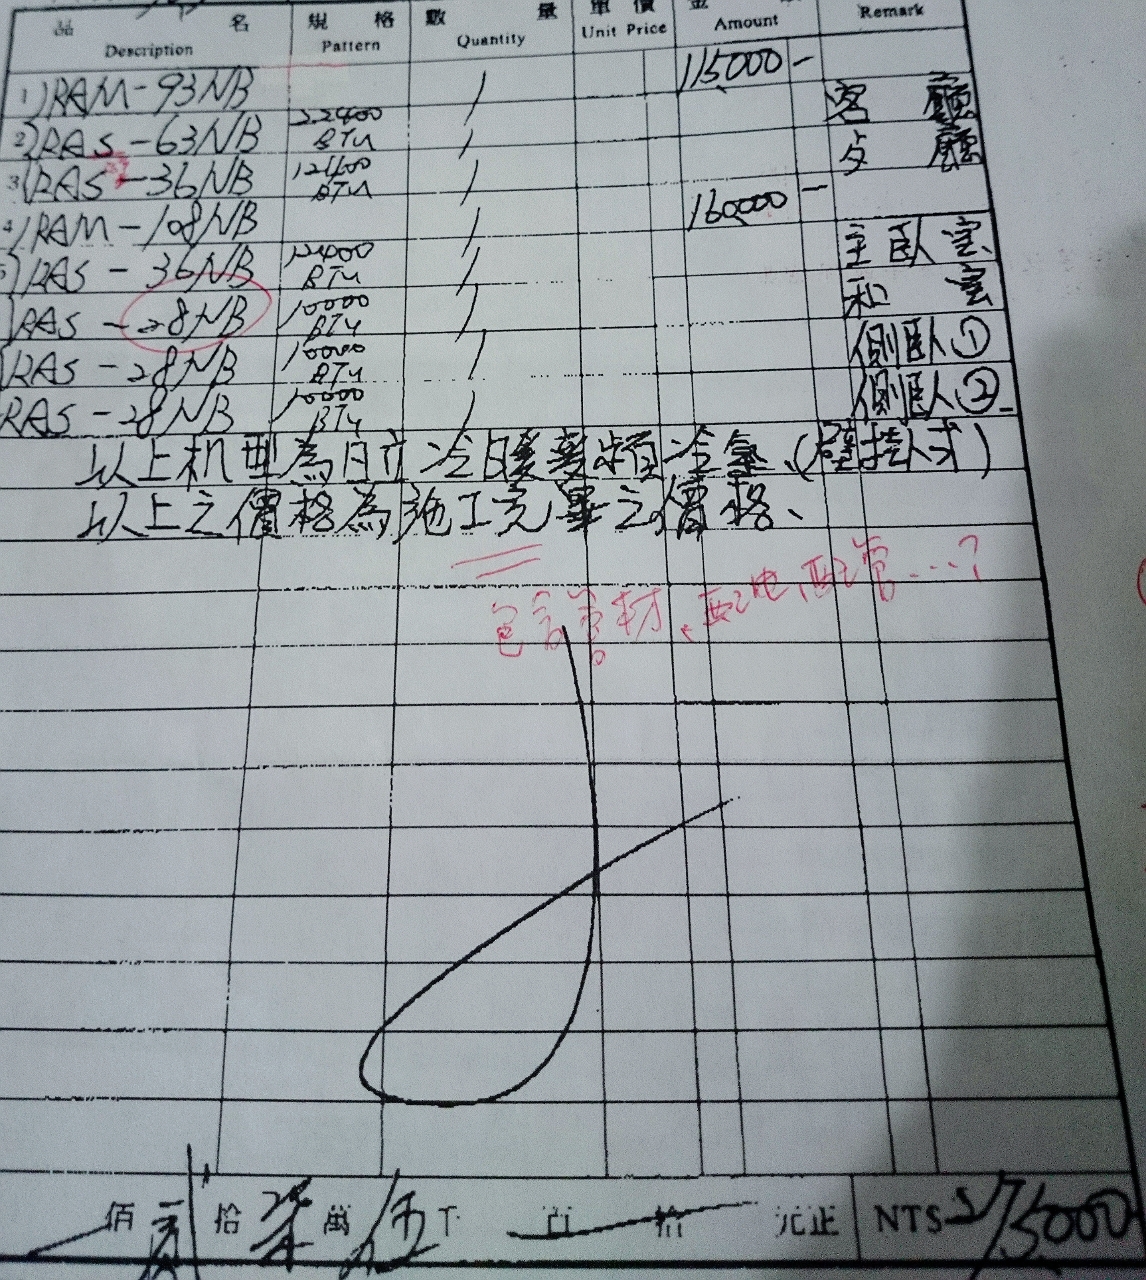 品名 規格 數量 單價 金 Remark
Description Pattern Quantity Unit Price Amount
1) RAM-93NB / 115000-
2) RAS-63NB 22400 BTU / 客廳
3) RAS-36NB 12400 BTU / 廳
4) RAM-108NB / 160000-
5) RAS-36NB 12400 BTU / 主臥室
RAS-28NB 10000 BTU / 和室
RAS-28NB 10000 BTU / 側臥①
RAS-28NB 10000 BTU / 側臥②
以上机型為日立冷暖變頻冷氣、(壁掛式)
以上之價格為施工完畢之價格、
包含管材、配电、配管...?
佰貳拾柒萬伍千百拾元正 NT$275000